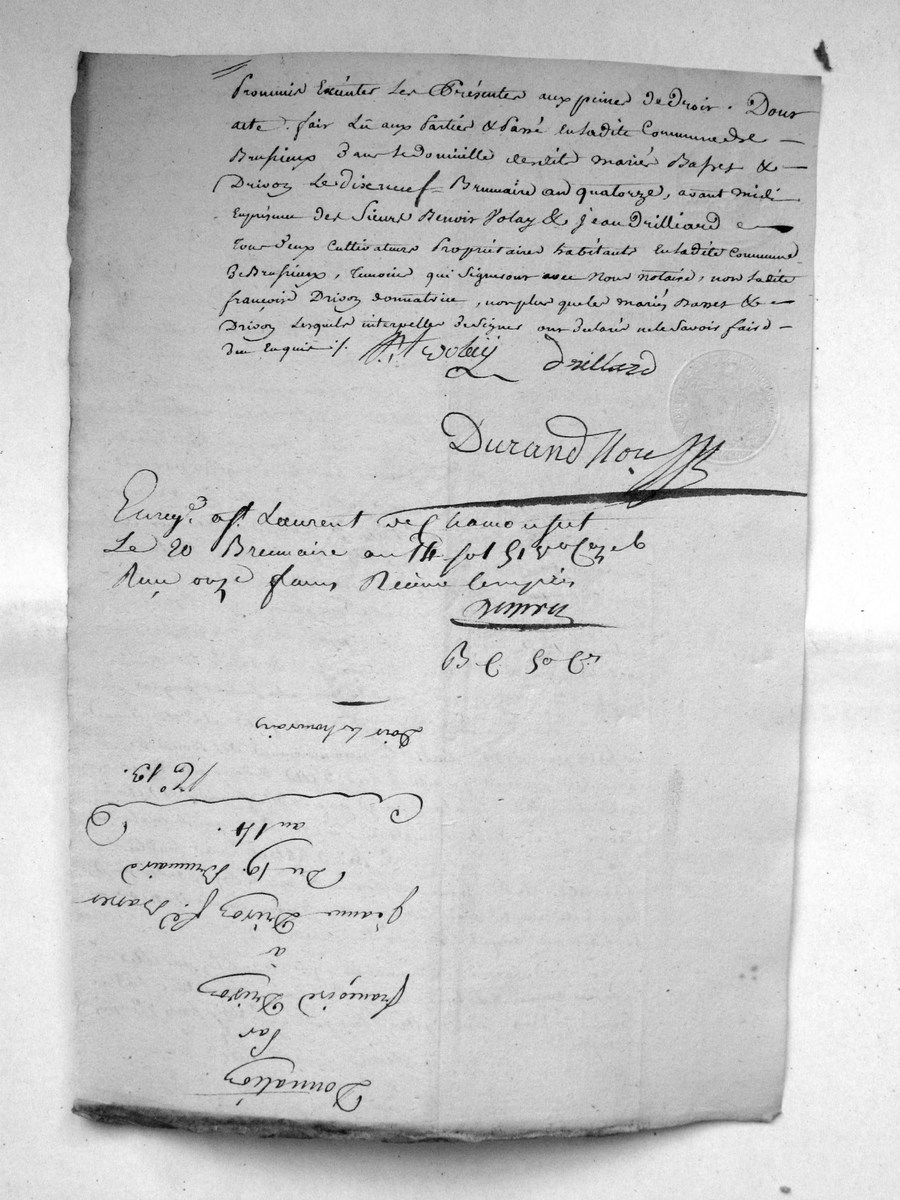 Promis Exécuter Les Présentes aux peines de Droit. Dont
acte. fait Lû aux Parties & Passé En Ladite Commune de
Brussieux Dans le domicille desdits mariés Basset &
Drivon Le dix neuf Brumaire an quatorze, avant midi
En présence des Sieurs Benoit Volay & Jean Drilliard
tous deux Cultivateurs Propriétaires habitants En Ladite Commune
De Brussieux, temoins qui Signeront avec Nous notaire, non Ladite
françoise Drivon donnatrice, non plus que les mariés Basset &
Drivon Lesquels interpellés de Signer ont declaré ne le Savoir faire
de ce Enquis ./.
Volay Drillard
Durand Nore
Enregé. a St. Laurent de Chamousset
Le 20 Brumaire an 14 fol 51
Reçu onze francs Décime Compris
Dois les honoraires
N.o 13.
an 14.
Du 19. Brumaire
Jeanne Drivon fe. Basset
à
françoise Drivon
Par
Donnation